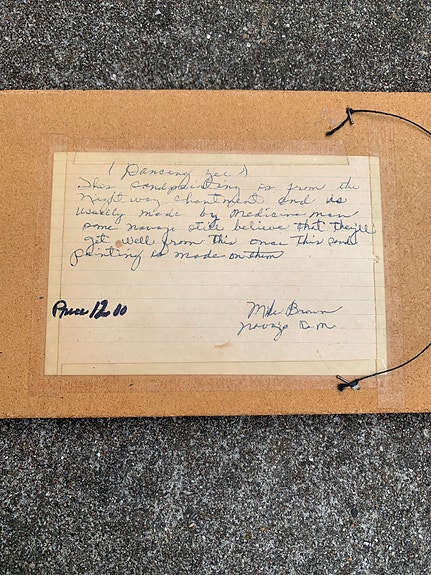 ( Dancing yei )
This sandpainting is from the
Night way chantment and is
usually made by Medicine man
some navajo still believe that they'll
get well from this once this sand
painting is made on them
Price 12 00
Mike Brown
navajo N.M.